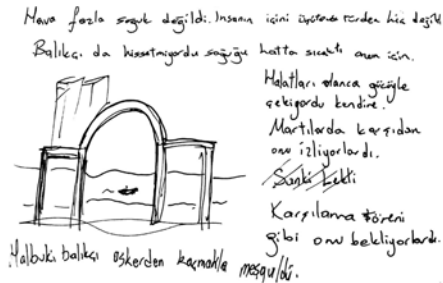 Hava fazla soğuk değildi. İnsanın içini üşüten türden hiç değildi
Balıkçı da hissetmiyordu soğuğu hatta sıcaktı onun için.
Halatları olanca gücüyle
çekiyordu kendine.
Martılarda karşıdan
onu izliyorlardı.
Sanki
Karşılama töreni
gibi onu bekliyorlardı.
Halbuki balıkçı askerden kaçmakla meşguldü.